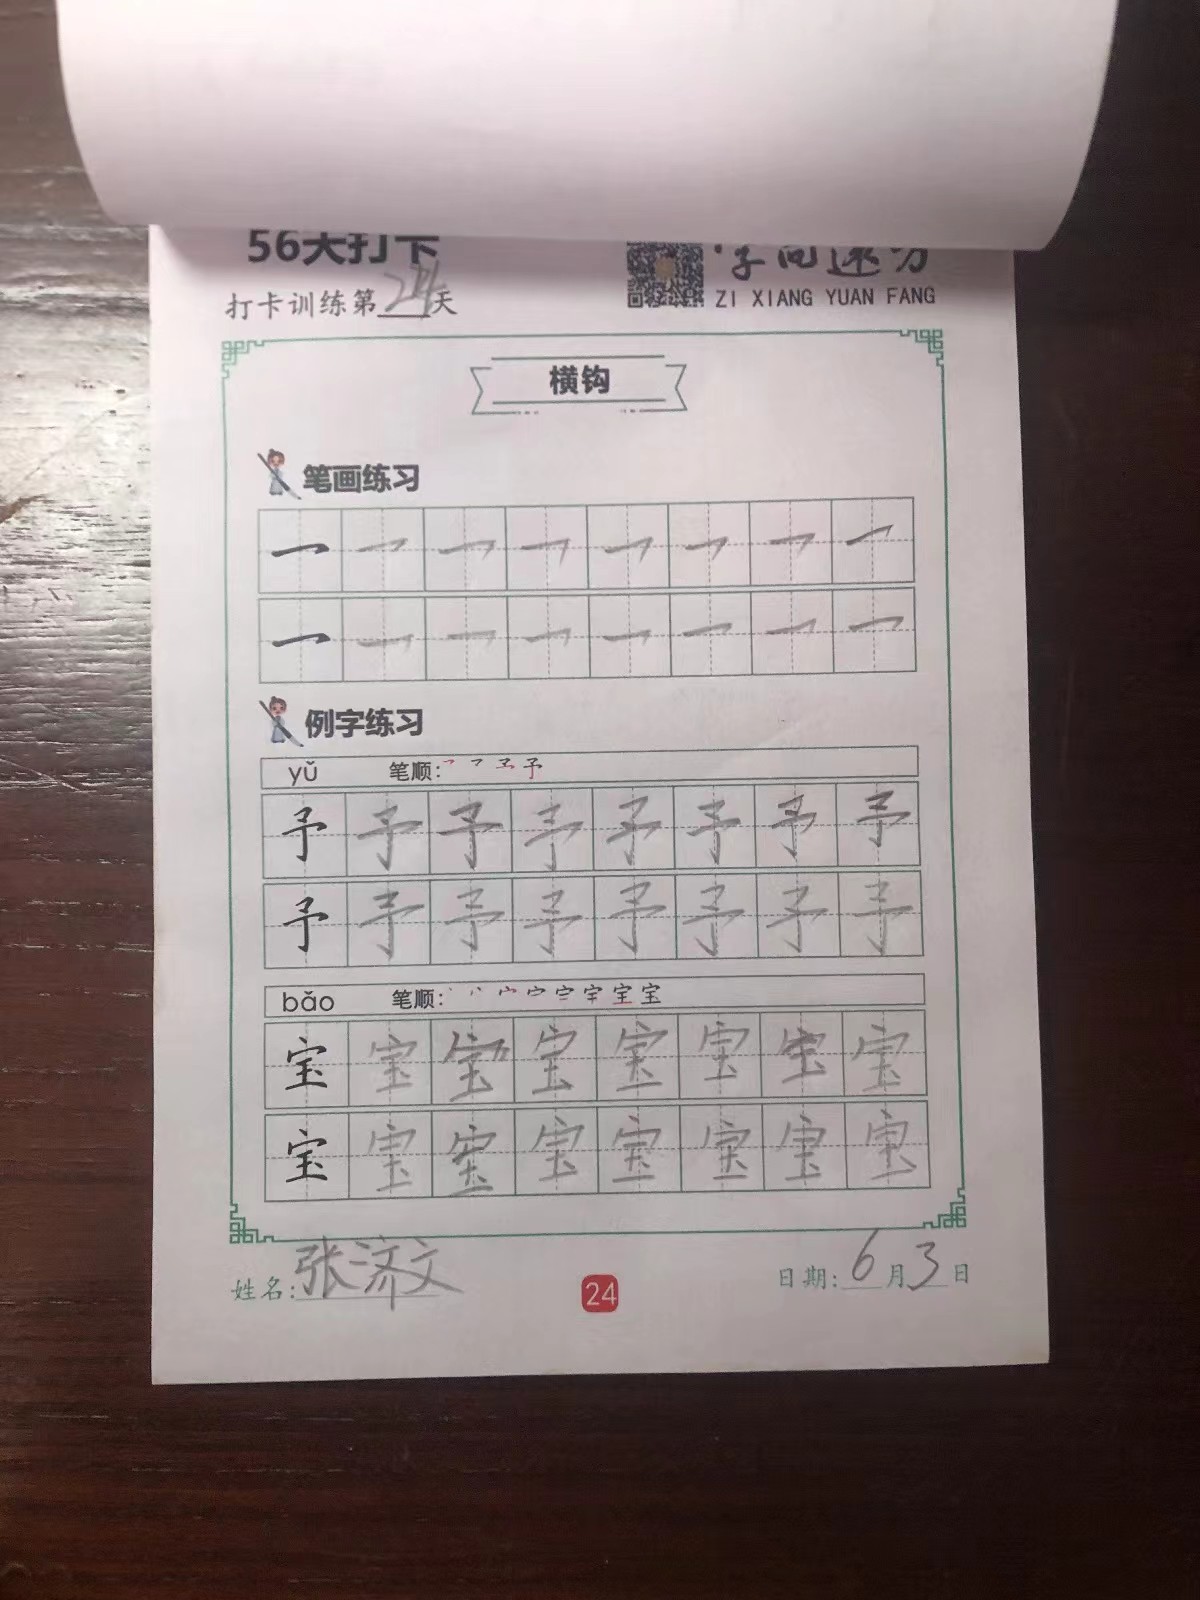 56天打卡
打卡训练第24天
字向速方
ZI XIANG YUAN FANG
横钩
笔画练习
例字练习
yǔ 笔顺:
予 予 予 予 予 予 予 予
予 予 予 予 予 予 予 予
bǎo 笔顺:
宝 宝 宝 宝 宝 宝 宝 宝
宝 宝 宝 宝 宝 宝 宝 宝
姓名:张济文
24
日期:6月3日